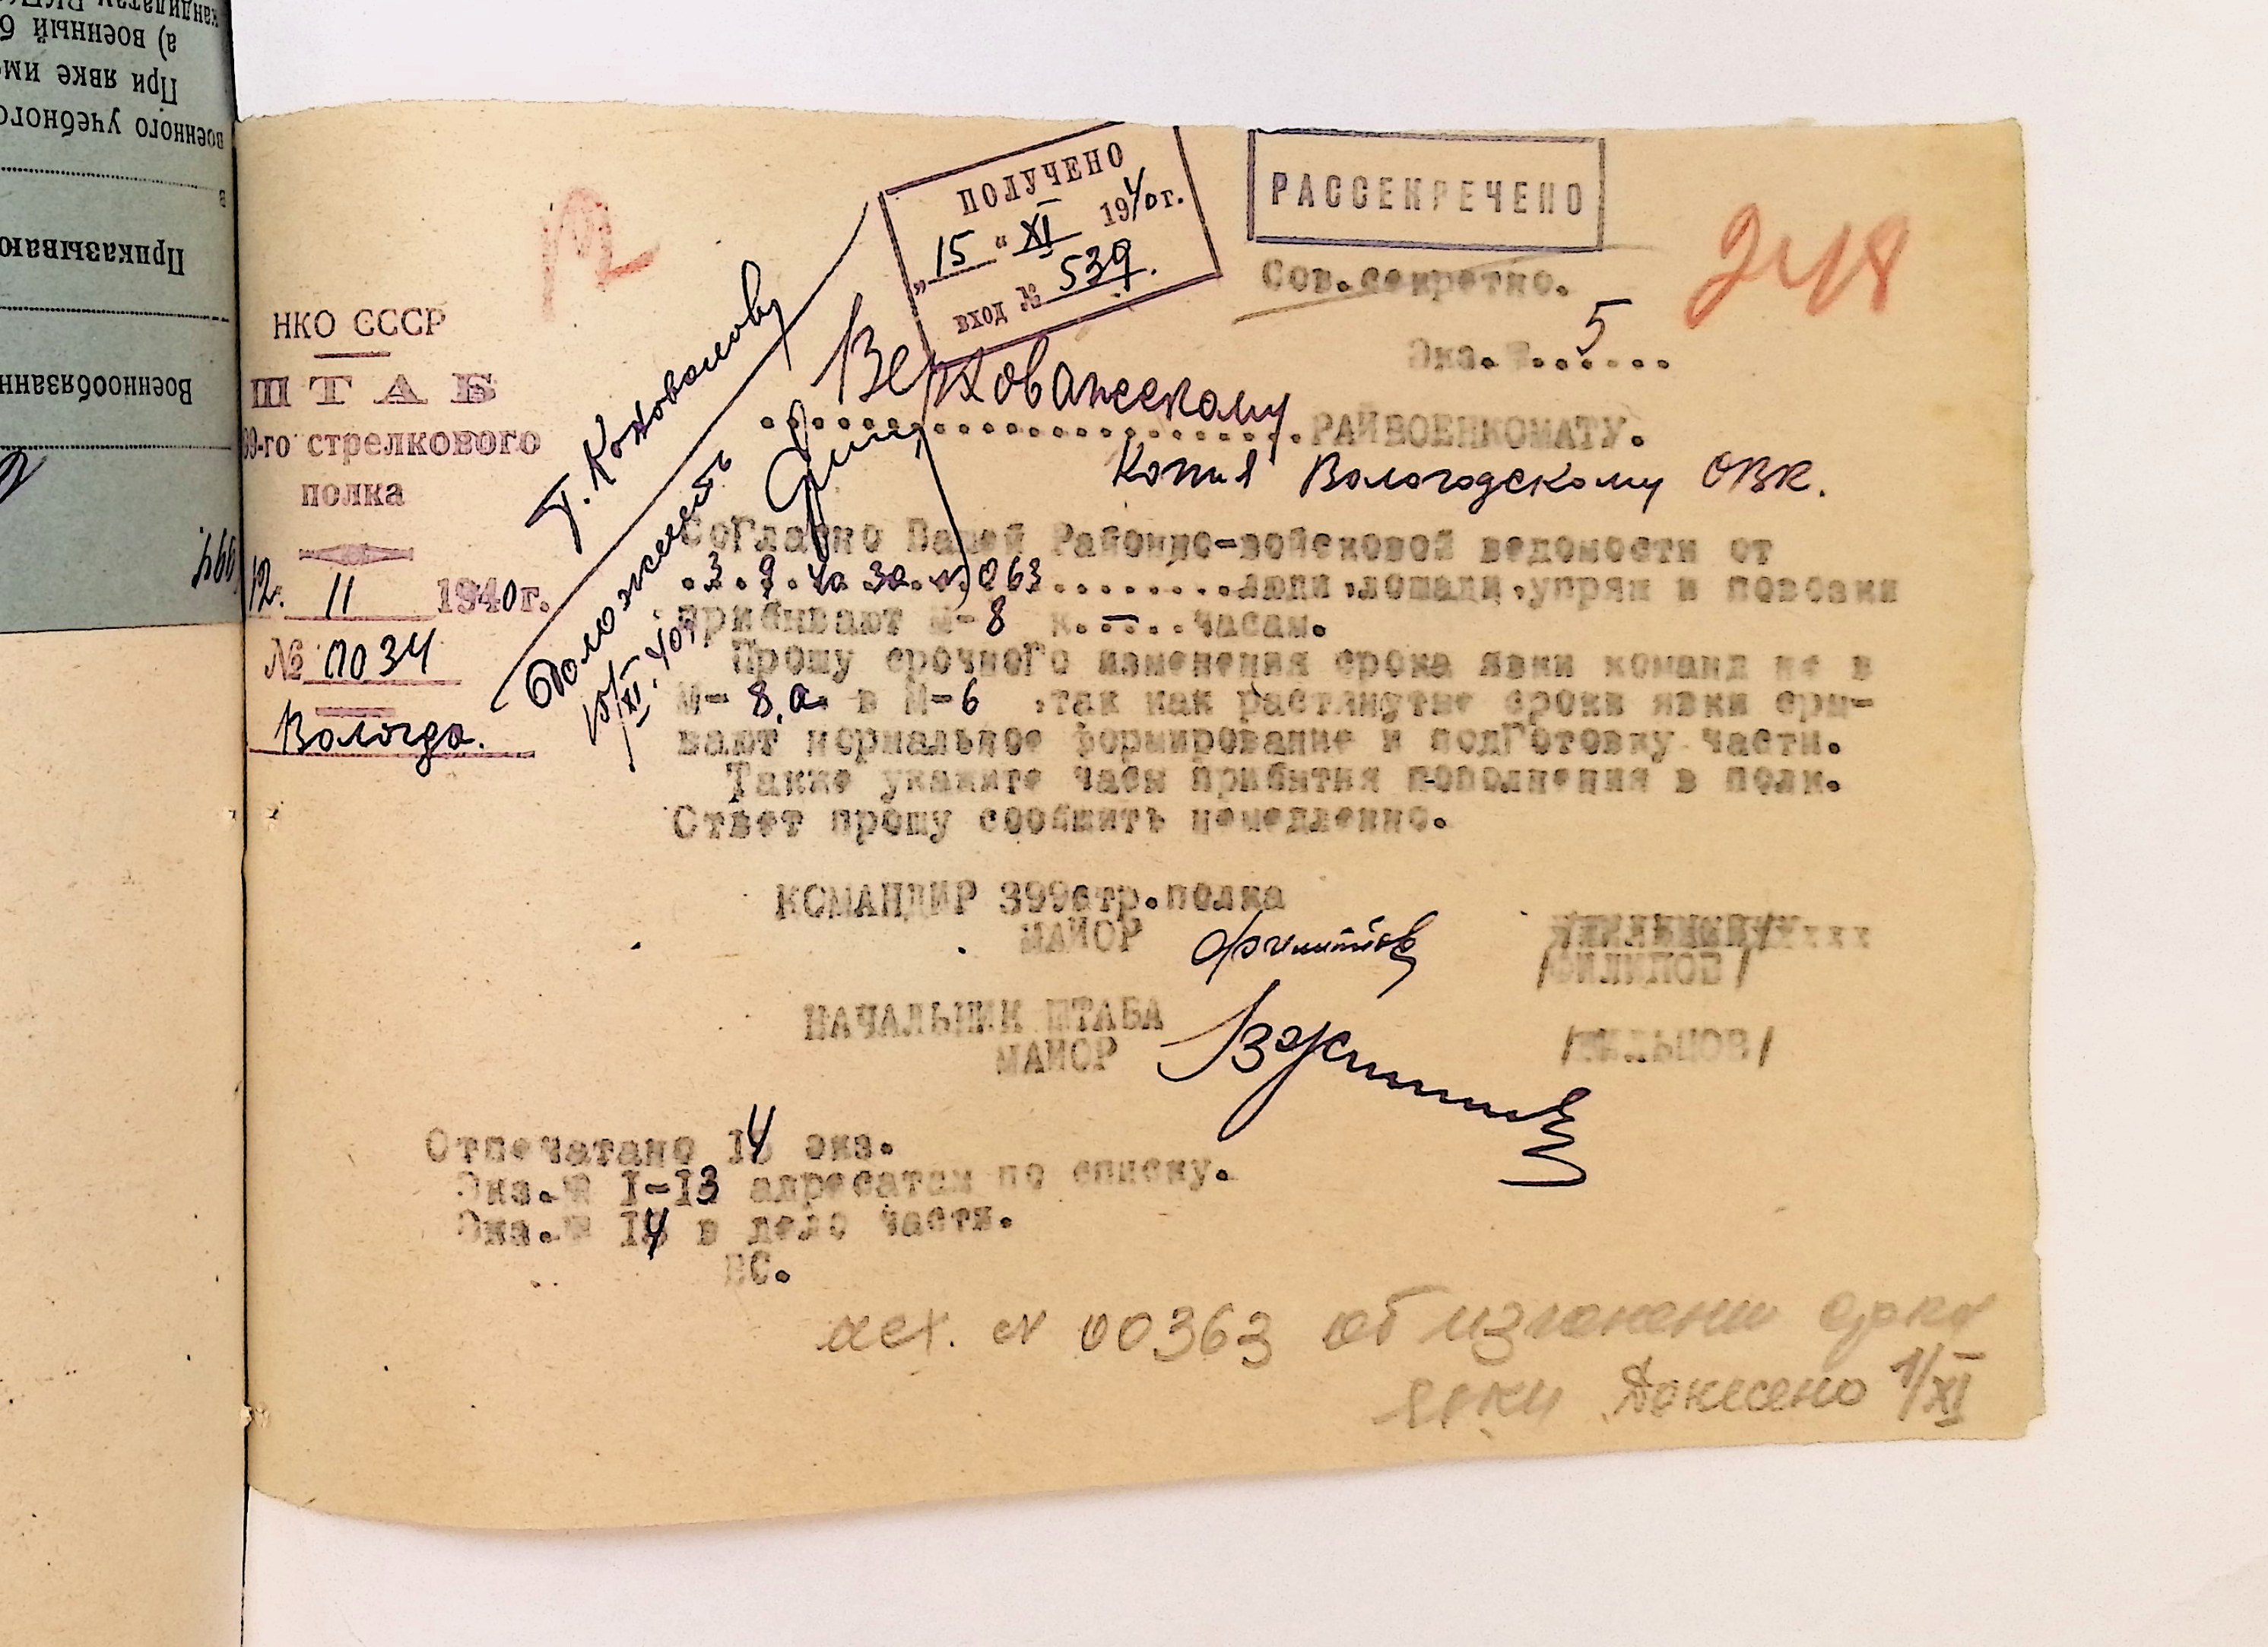 ПОЛУЧЕНО
"15" XI 1940г.
вход № 539.
РАССЕКРЕЧЕНО
248
Сов.секретно.
Экз.№ 5
НКО СССР
ШТАБ
99-го стрелкового
полка
12. 11 1940г.
№ 0034
Вологда.
Т. Коновалову
Доложить
15/XI.40г
Верховажскому РАЙВОЕНКОМАТУ.
Копия Вологодскому ОВК.
Согласно Вашей Районно-войсковой ведомости от
.3.9.40 за №063.........люди,лошади,упряж и повозки
прибывают М-8 к.–...часам.
Прошу срочного изменения срока явки команд не в
М-8,а в М-6 ,так как растянутые сроки явки сры-
вают нормальное формирование и подготовку части.
Также укажите часы прибытия пополнения в полк.
Ответ прошу сообщить немедленно.
КОМАНДИР 399стр.полка
МАЙОР
/ФИЛИПОВ/
НАЧАЛЬНИК ШТАБА
МАЙОР
/ЖИЛЬЦОВ/
Отпечатано 14 экз.
Экз.№ I-I3 адресатам по списку.
Экз.№ I4 в дело части.
ВС.
исх. № 00363 об изменени срока
явки Донесено 1/XI
военного учебного
При явке име
а) военный б
кандидатам ВКП
в
Приказываю
Военнообязанн